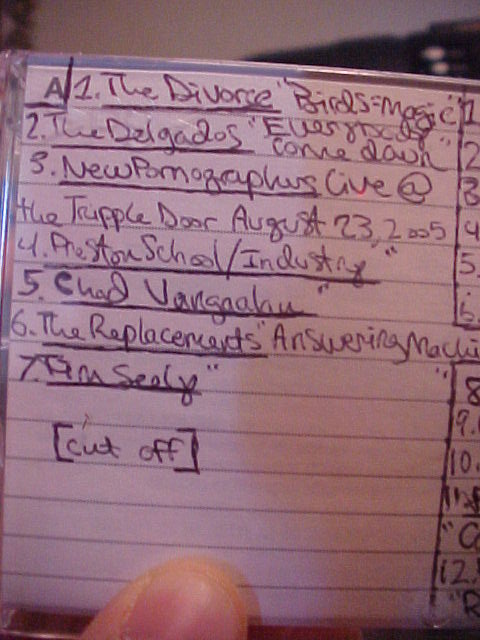 A 1. The Divorce "Birds=Magic"
2. The Delgados "Everybody
come down"
3. New Pornographers Live @
the Tripple Door August 23, 2005
4. Preston School/Industry "
5. Chad "
6. The Replacements "Answering Machi
7. Tim Sealy "
[cut off]
1
2
3
4
5.
6.
" 8
9.
10.
11.
"C
12.
"R